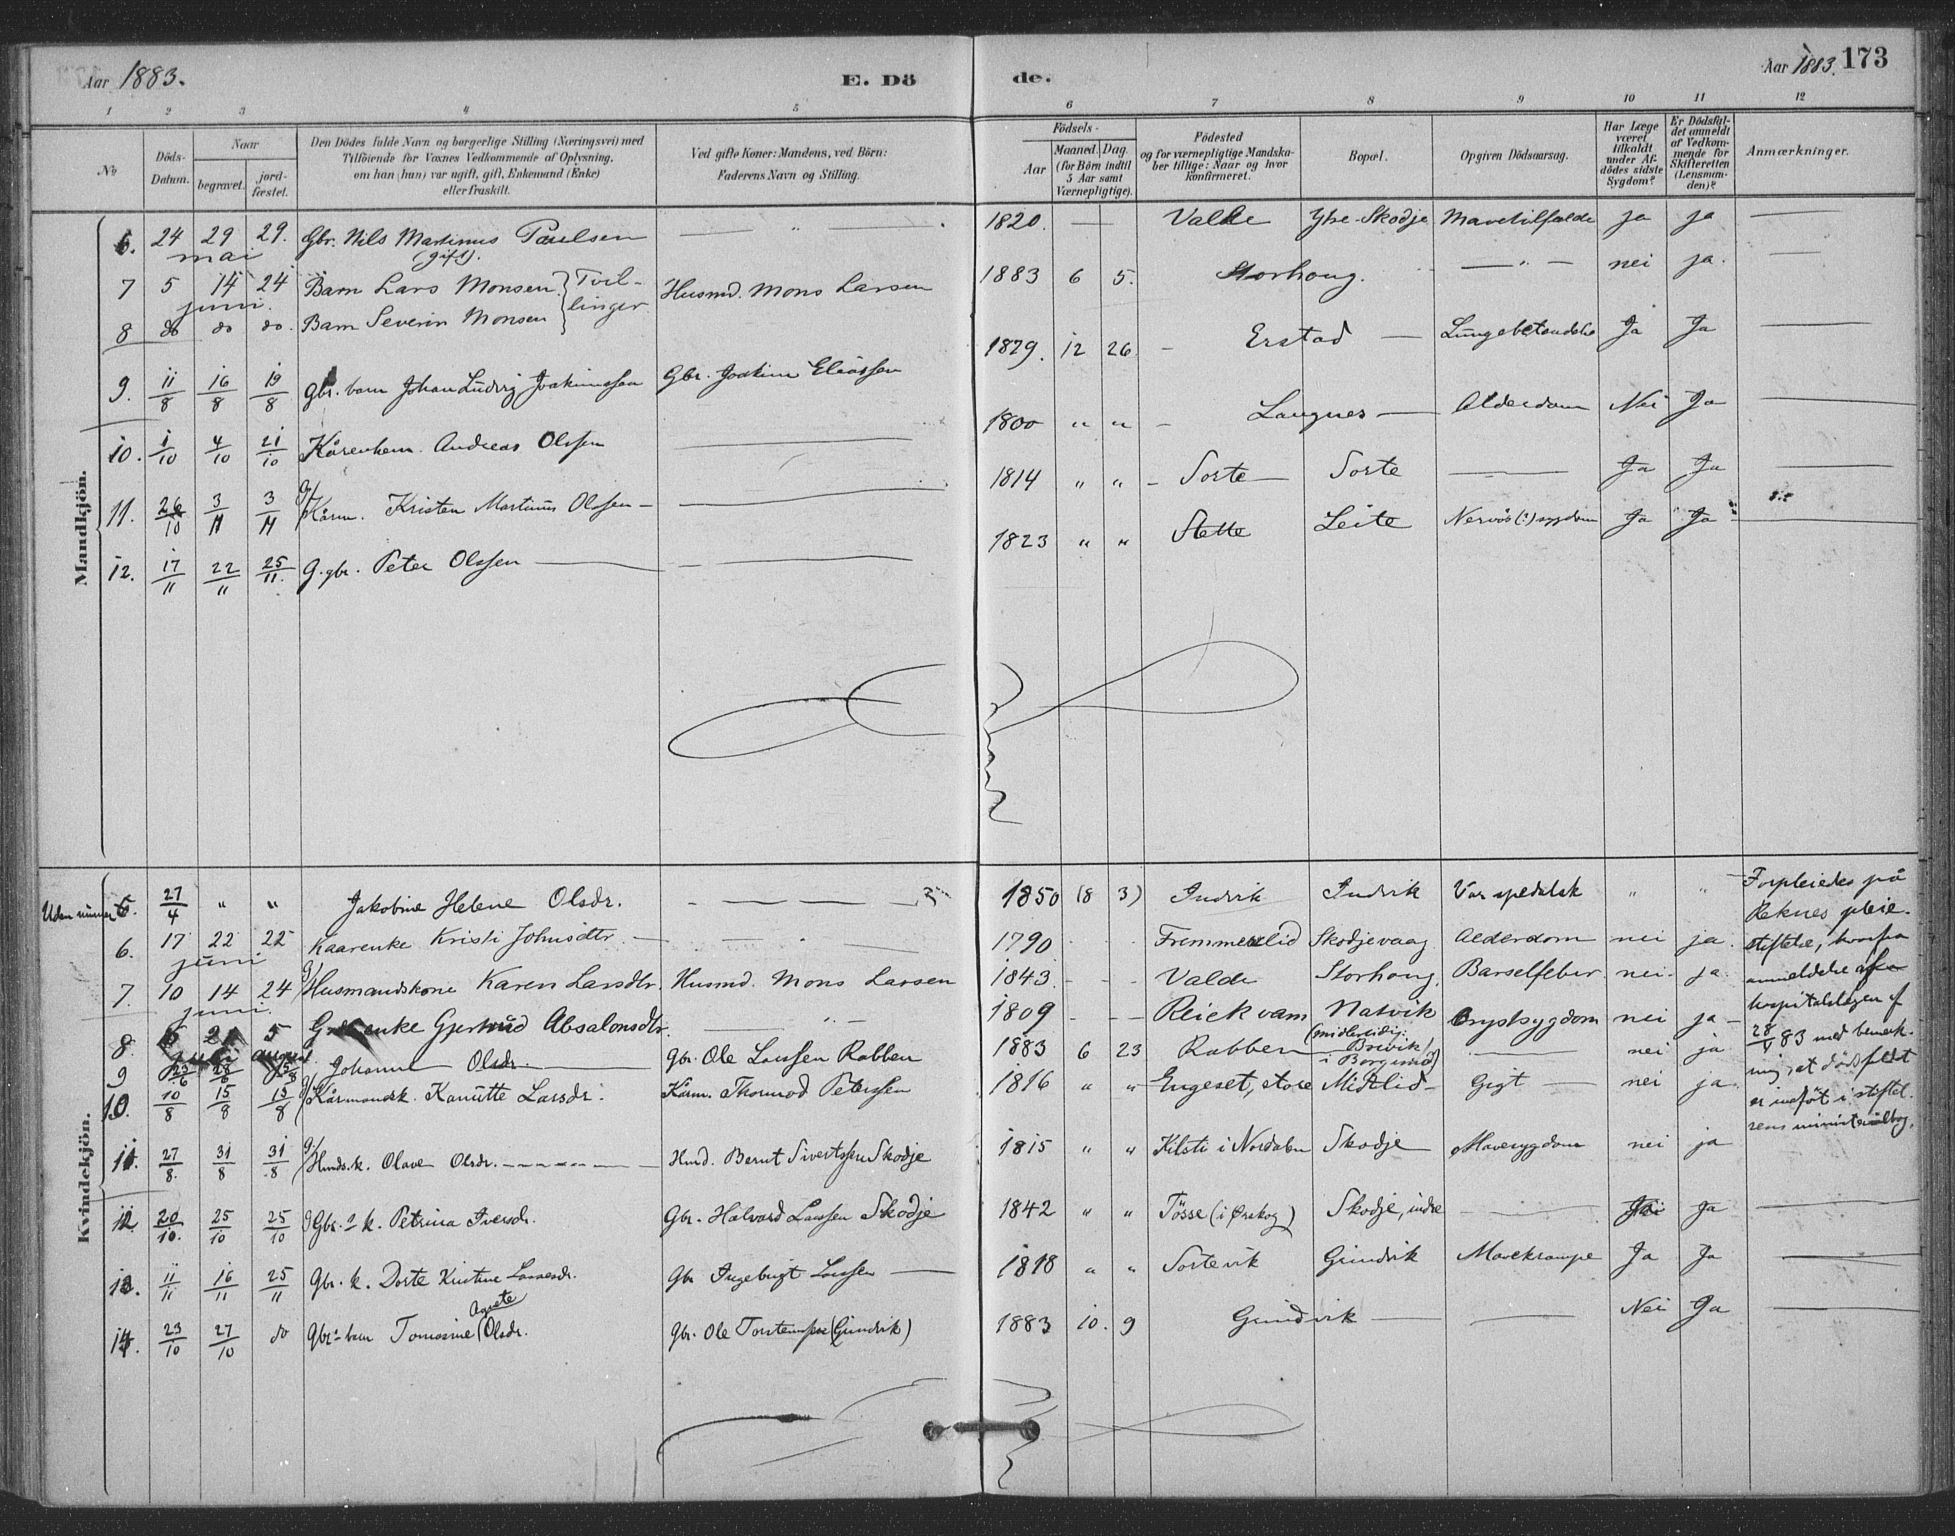 Aar 1883. E. Dö de. Aar 1883. 173
1 2 3 4 5 6 7 8 9 10 11 12
No Döds-Datum. Naar begravet. jord-fæstet. Den Dödes fulde Navn og borgerlige Stilling (Næringsvei) med Tilföiende for Voxnes Vedkommende af Oplysning, om han (hun) var ugift, gift, Enkemand (Enke) eller fraskilt. Ved gifte Koner: Mandens, ved Börn: Faderens Navn og Stilling. Födsels- Aar Maaned. Dag. (for Börn indtil 5 Aar samt Værnepligtige). Födested og for værnepligtige Mandskaber tillige: Naar og hvor konfirmeret. Bopæl. Opgiven Dödsaarsag. Har Læge været tilkaldt under Afdödes sidste Sygdom? Er Dödsfaldet anmeldt af Vedkommende for Skifteretten (Lensmanden)? Anmærkninger.
Mandkjön.
6. 24 29 29. Gbr. Nils Martinus Paulsen — " — 1820. — — Valde Ytre-Skodje Mavetilfælde ja ja —
mai (gift).
7 5 14 24 Barn Lars Monsen } Tvil- Husmd. Mons Larsen 1883 6 5. Storhoug. — " — nei ja. —
juni. linger
8 do do do. Barn Severin Monsen
9. 11/8 16/8 19/8 Gbr. barn Johan Ludvig Joakimssen Gbr. Joakim Eliassen 1879. 12 26. — Erstad — Lungebetændelse Ja Ja —
10. 1/10 4/10 21/10 Kårenkem. Andreas Olssen — 1800 " " — Langnes — Alderdom Nei Ja —
11. 26/10 3/11 3/11 g/ Kårm. Kristen Martinus Olssen — 1814 " " — Sorte — Sorte — Ja Ja —
12. 17/11 22/11 25/11. G. gbr. Peter Olssen — 1823 " " Stette Leite Nervøs (:) sygdom Ja Ja —
Kvindekjön.
Uden nummer 5. 27/4 " " Jakobine Helene Olsdr. — — — 1850 (8 3) Indvik Indvik Var spedalsk " " Forpleiedes på
Reknes pleie-
6. 17 22 22 Kaarenke Kristi Johnsdtr. — 1790 Fremmerlid Skodjevaag Alderdom nei ja. stiftelse, hvorfra
juni
7. 10 14 24 g/ Husmandskone Karen Larsdtr. Husmd. Mons Larsen 1843. — — Valde Storhoug. Barselfeber nei. ja anmeldelse
juni. hospitalslægen af
8. 21 5 Gjertrud Absalonsdtr. — 1809 — — Reiekvam Natvik Brystsygdom nei ja — 28/ 83 med bemærk-
august (midlertidig:
9 23/6 28/6 5/8 Johanne Olsdr. — Gbr. Ole Larssen Rabben 1883 6 23 Rabben — Brevik i Borgund) — nei ja ning, at dödsfaldet
10. 10/8 15/8 15/8 g/ Kårmandsk. Kanutte Larsdr. Kårm. Thormod Peterssen 1816 " " Engeset, store Midtlid — Gigt — nei ja er indført i stiftel-
sens ministerialbog.
11. 27/8. 31/8 31/8 g/ Hmds. k. Olave Olsdr. — Hmd. Bernt Sivertssen Skodje 1815 " " Kilsti i Nordalen Skodje Mavesygdom nei ja
12. 20/10. 25/10 25/10 g Gbr. k. Petrina Iversdr. Gbr. Halvard Larssen Skodje 1842 " " Tösse (i Ørskog) Skodje, indre — Ja —
13. 11/11 16/11 25/11 Gbr. k. Dorte Kristine Larsdr. Gbr Ingebrigt Larssen — 1818 " " Sortevik Grindvik Mavekrampe Ja Ja —
Agnete
14. 23/10 27/10 do Gbr. barn Tomasine (Olsdr. Gbr. Ole Torstenssen (Grindvik) 1883 10. 9 Grindvik — — Nei Ja —